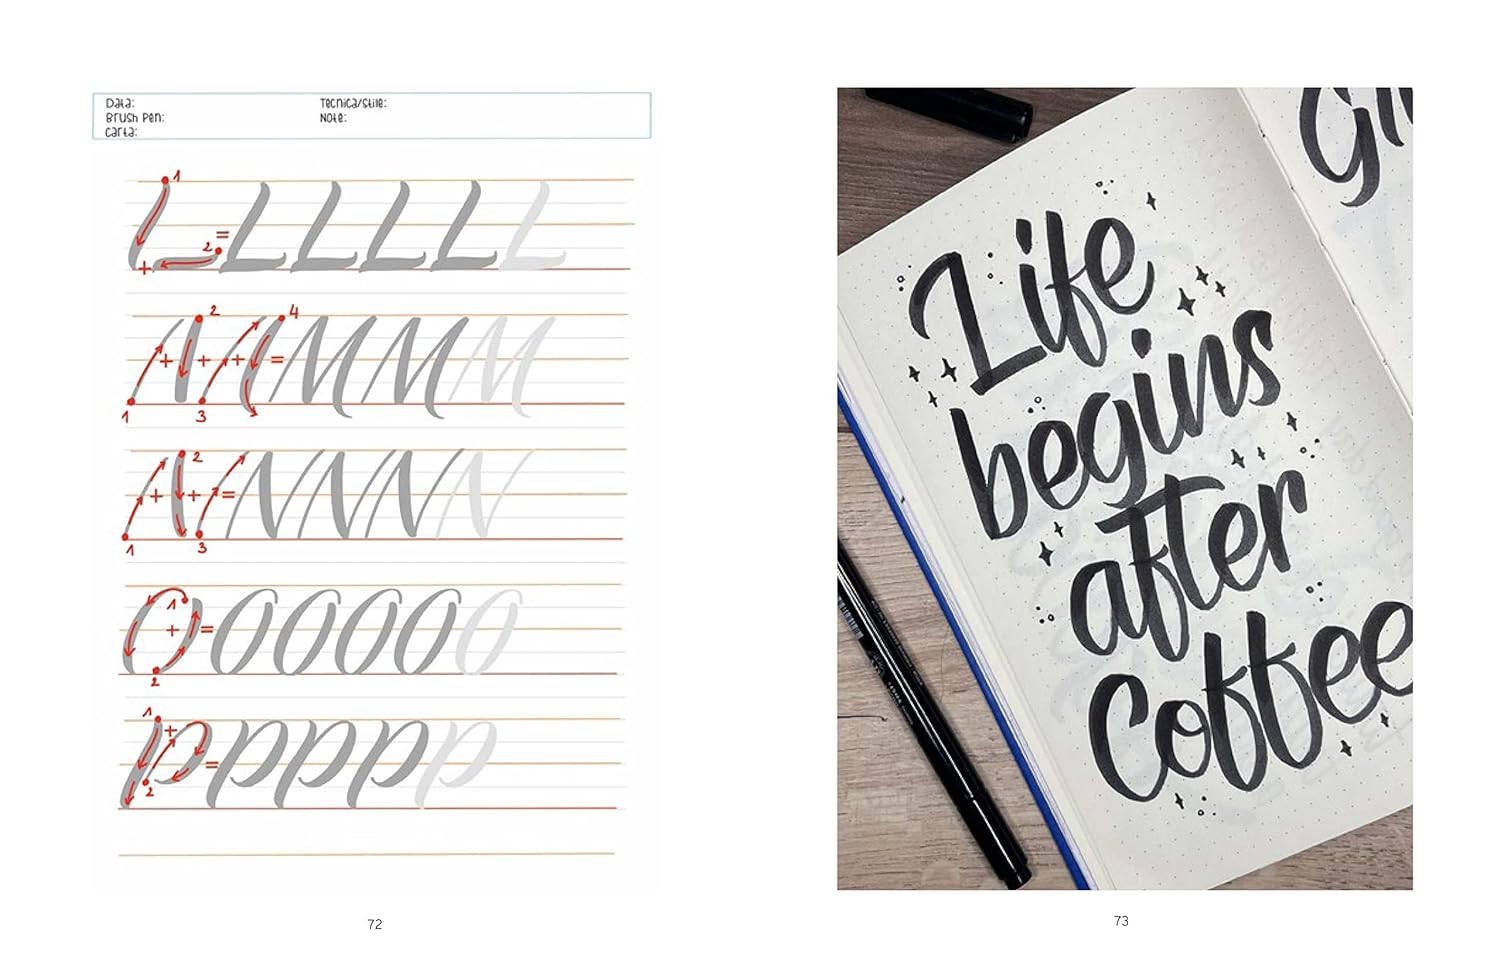 Data:
Brush Pen:
Carta:
Tecnica/Stile:
Note:
1 + 2 = L L L L L
1 + 2 + 3 + 4 = M M M M
1 + 2 + 3 = N N N N
1 + 2 = O O O O O
1 + 2 = P P P P
72
Life
begins
after
Coffee
73